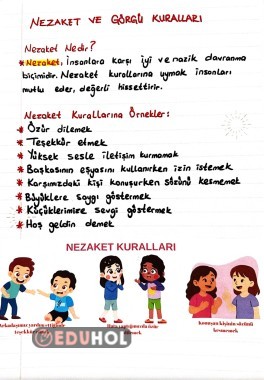 NEZAKET VE GÖRGÜ KURALLARI
Nezaket Nedir?
* Nezaket, insanlara karşı iyi ve nazik davranma
biçimidir. Nezaket kurallarına uymak insanları
mutlu eder, değerli hissettirir.
Nezaket Kurallarına Örnekler:
* Özür dilemek
* Teşekkür etmek
* Yüksek sesle iletişim kurmamak
* Başkasının eşyasını kullanırken izin istemek
* Karşımızdaki kişi konuşurken sözünü kesmemek
* Büyüklere saygı göstermek
* Küçüklerimize sevgi göstermek
* Hoş geldin demek
NEZAKET KURALLARI
Arkadaşımız yardım ettiğinde
teşekkür
Hata yaptığımızda özür
Konuşan kişinin sözünü
kesmemek
EDUHOL